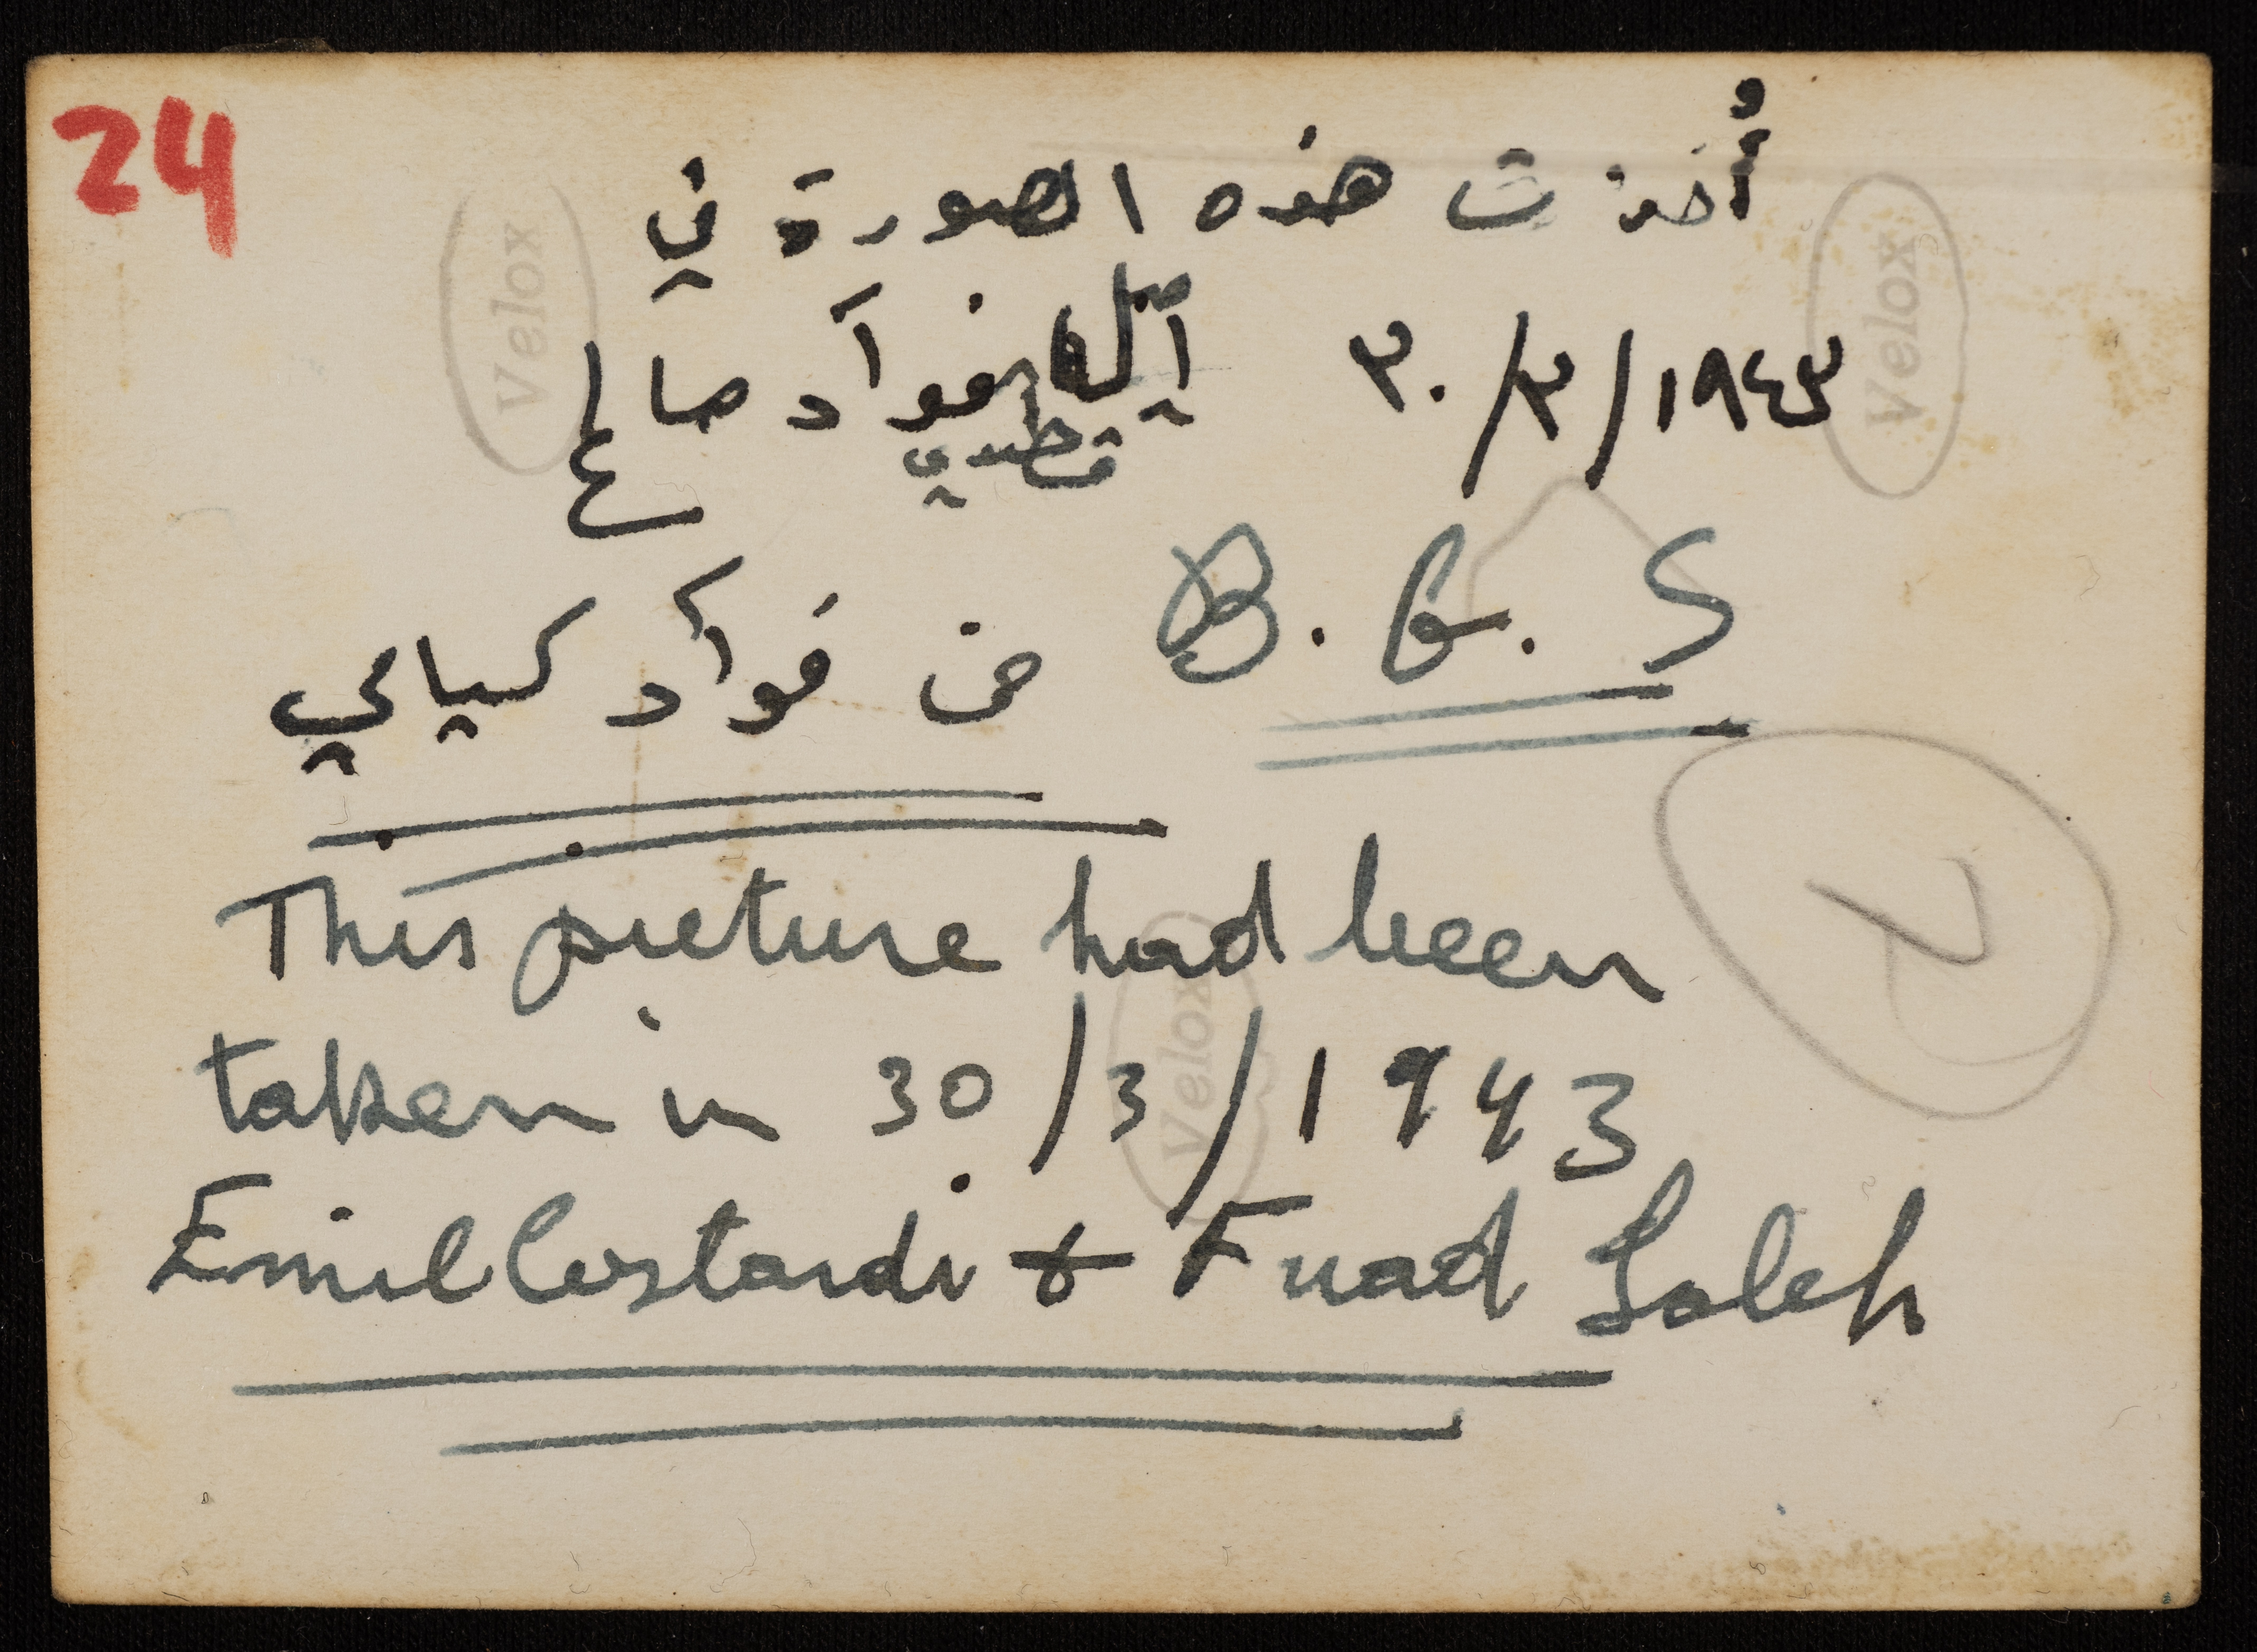 24
أُخذت هذه الصورة في
٣٠/٣/١٩٤٣ فوآد صالح
B. G. S من فوآد كيالي
This picture had been
taken in 30/3/1943
Emil Costandi & Fuad Saleh
Velox
Velox
Velox